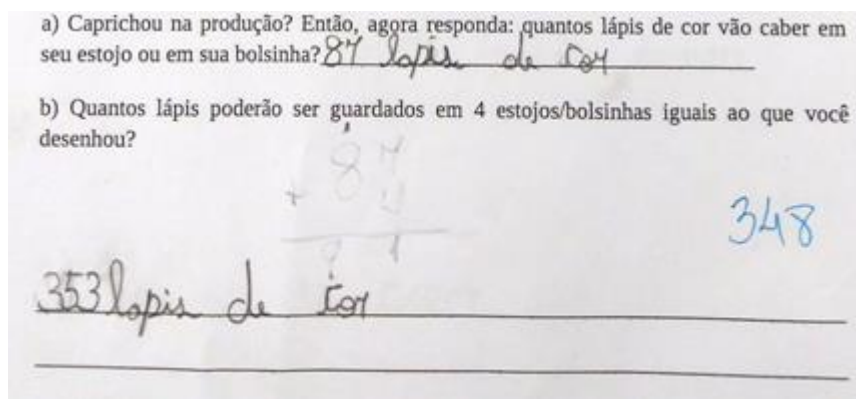 a) Caprichou na produção? Então, agora responda: quantos lápis de cor vão caber em
seu estojo ou em sua bolsinha? 87 lapis de cor
b) Quantos lápis poderão ser guardados em 4 estojos/bolsinhas iguais ao que você
desenhou?
1
87
+ 4
91
348
353 lapis de cor